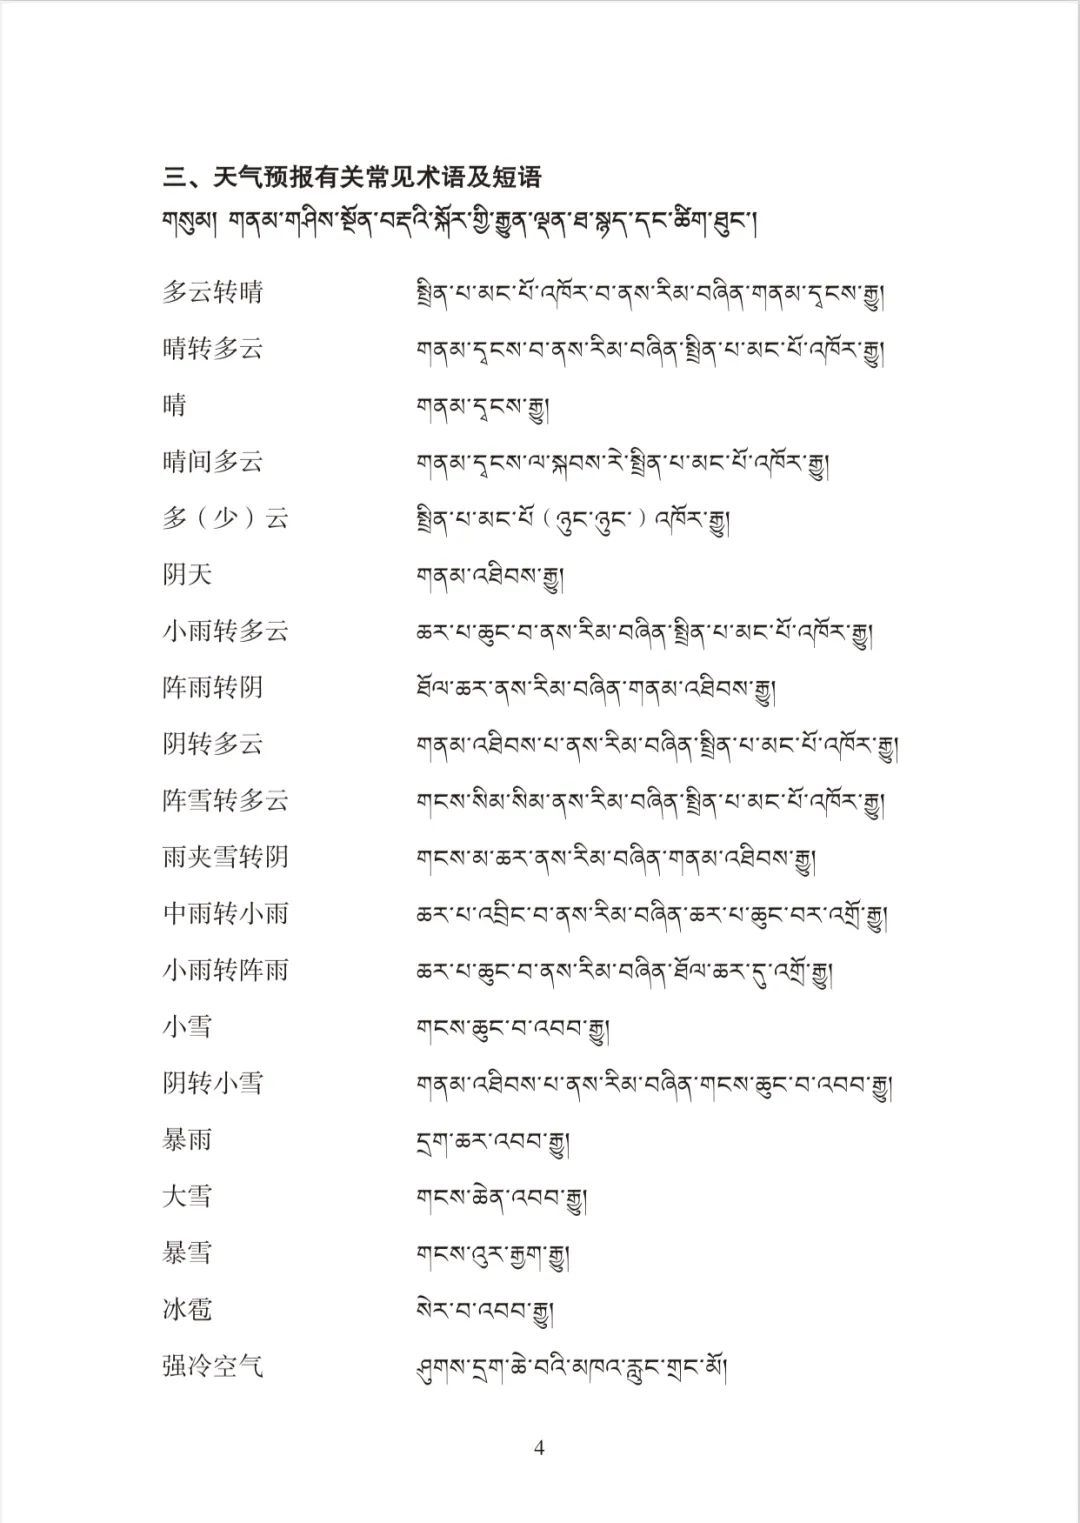 三、天气预报有关常见术语及短语
གསུམ། གནམ་གཤིས་སྔོན་བརྡའི་སྐོར་གྱི་རྒྱུན་ལྡན་ཐ་སྙད་དང་ཚིག་ཐུང་།
多云转晴 སྤྲིན་པ་མང་པོ་འཁོར་བ་ནས་རིམ་བཞིན་གནམ་དྭངས་རྒྱུ།
晴转多云 གནམ་དྭངས་བ་ནས་རིམ་བཞིན་སྤྲིན་པ་མང་པོ་འཁོར་རྒྱུ།
晴 གནམ་དྭངས་རྒྱུ།
晴间多云 གནམ་དྭངས་ལ་སྐབས་རེ་སྤྲིན་པ་མང་པོ་འཁོར་རྒྱུ།
多（少）云 སྤྲིན་པ་མང་པོ（ཉུང་ཉུང་）འཁོར་རྒྱུ།
阴天 གནམ་འཐིབས་རྒྱུ།
小雨转多云 ཆར་པ་ཆུང་བ་ནས་རིམ་བཞིན་སྤྲིན་པ་མང་པོ་འཁོར་རྒྱུ།
阵雨转阴 ཐོལ་ཆར་ནས་རིམ་བཞིན་གནམ་འཐིབས་རྒྱུ།
阴转多云 གནམ་འཐིབས་པ་ནས་རིམ་བཞིན་སྤྲིན་པ་མང་པོ་འཁོར་རྒྱུ།
阵雪转多云 གངས་སིམ་སིམ་ནས་རིམ་བཞིན་སྤྲིན་པ་མང་པོ་འཁོར་རྒྱུ།
雨夹雪转阴 གངས་མ་ཆར་ནས་རིམ་བཞིན་གནམ་འཐིབས་རྒྱུ།
中雨转小雨 ཆར་པ་འབྲིང་བ་ནས་རིམ་བཞིན་ཆར་པ་ཆུང་བར་འགྲོ་རྒྱུ།
小雨转阵雨 ཆར་པ་ཆུང་བ་ནས་རིམ་བཞིན་ཐོལ་ཆར་དུ་འགྲོ་རྒྱུ།
小雪 གངས་ཆུང་བ་འབབ་རྒྱུ།
阴转小雪 གནམ་འཐིབས་པ་ནས་རིམ་བཞིན་གངས་ཆུང་བ་འབབ་རྒྱུ།
暴雨 དྲག་ཆར་འབབ་རྒྱུ།
大雪 གངས་ཆེན་འབབ་རྒྱུ།
暴雪 གངས་འུར་རྒྱག་རྒྱུ།
冰雹 སེར་བ་འབབ་རྒྱུ།
强冷空气 ཤུགས་དྲག་ཆེ་བའི་མཁའ་རླུང་གྲང་མོ།
4